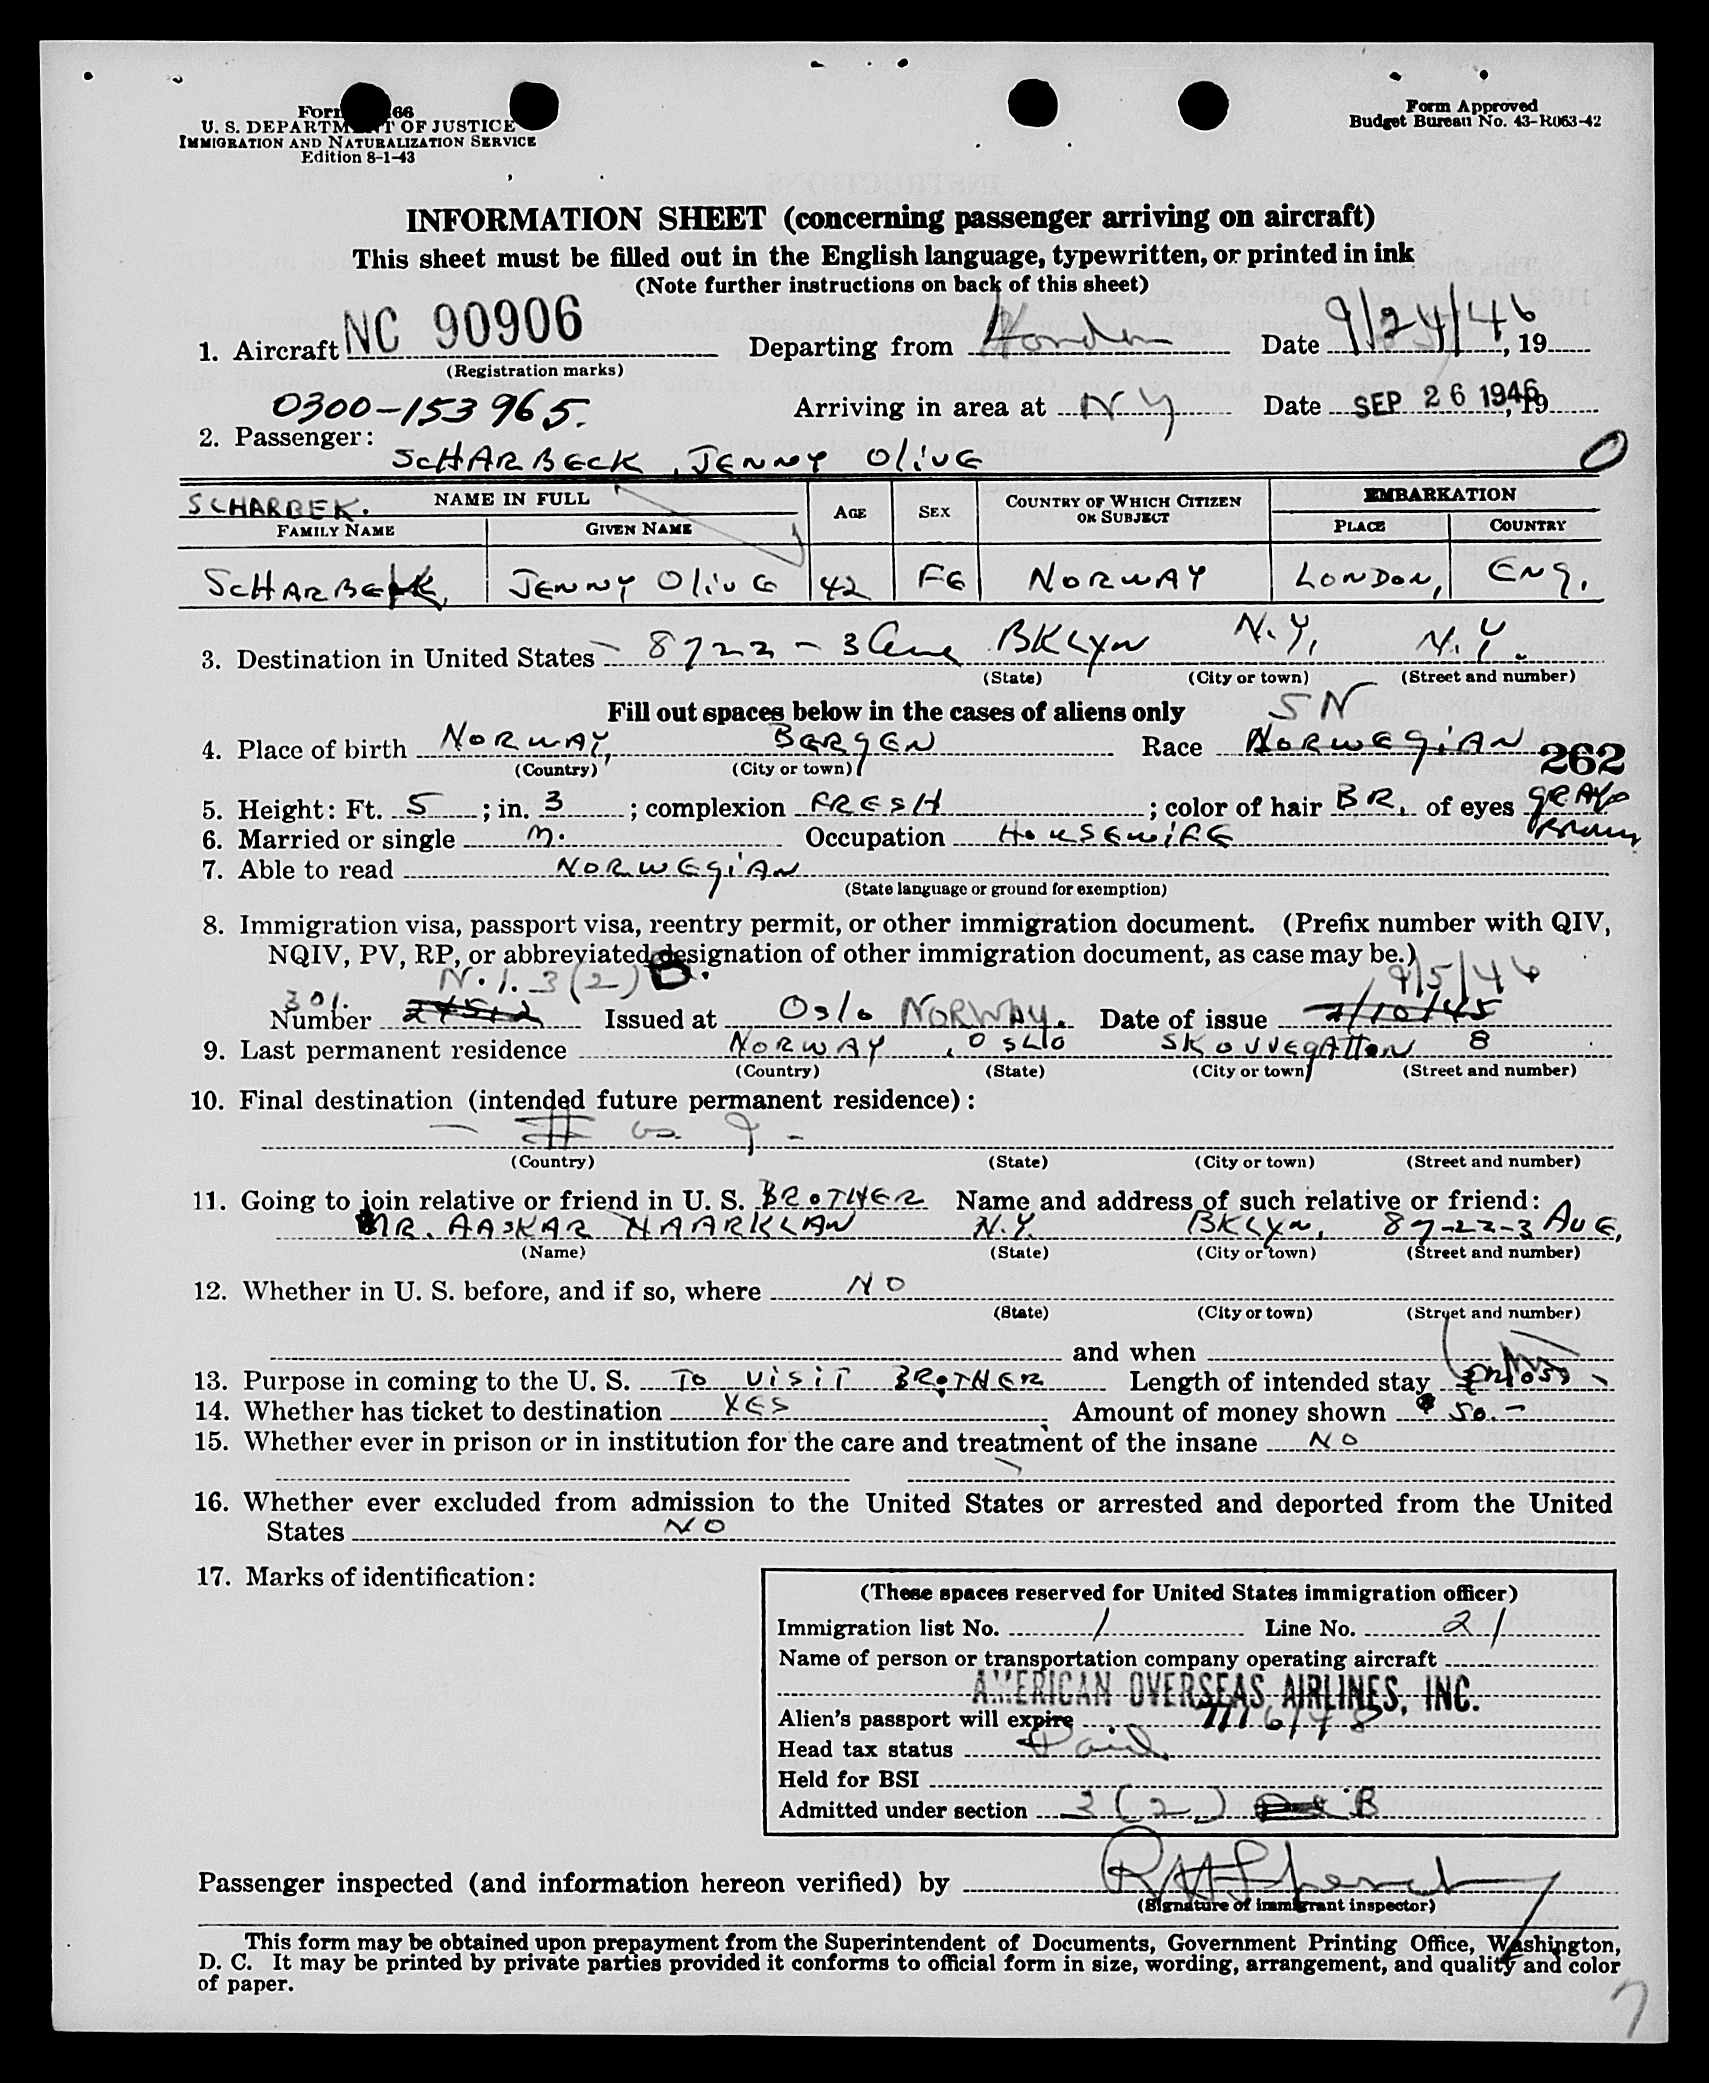 Form 66
U. S. DEPARTMENT OF JUSTICE
IMMIGRATION AND NATURALIZATION SERVICE
Edition 8-1-43
Form Approved
Budget Bureau No. 43-R063-42
INFORMATION SHEET (concerning passenger arriving on aircraft)
This sheet must be filled out in the English language, typewritten, or printed in ink
(Note further instructions on back of this sheet)
1. Aircraft NC 90906 Departing from London Date 9/24/46, 19
(Registration marks)
0300-153965. Arriving in area at NY Date SEP 26 1946, 19
2. Passenger:
SCHARBECK, JENNY OLIVE O
SCHARBEK. NAME IN FULL AGE SEX COUNTRY OF WHICH CITIZEN OR SUBJECT EMBARKATION
FAMILY NAME GIVEN NAME PLACE COUNTRY
SCHARBEK, JENNY OLIVE 42 FE NORWAY LONDON, ENG.
3. Destination in United States - 8722 - 3 Ave BKLYN N.Y. N.Y.
(State) (City or town) (Street and number)
Fill out spaces below in the cases of aliens only SN
4. Place of birth NORWAY, BERGEN Race NORWEGIAN 262
(Country) (City or town)
5. Height: Ft. 5; in. 3; complexion FRESH; color of hair BR. of eyes GRAY
Brown
6. Married or single M. Occupation HOUSEWIFE
7. Able to read NORWEGIAN
(State language or ground for exemption)
8. Immigration visa, passport visa, reentry permit, or other immigration document. (Prefix number with QIV,
NQIV, PV, RP, or abbreviated designation of other immigration document, as case may be.)
N.I. 3(2) B. 9/5/46
301.
Number Issued at Oslo NORWAY. Date of issue 7/10/45
9. Last permanent residence NORWAY, OSLO SKOVVEGATTEN 8
(Country) (State) (City or town) (Street and number)
10. Final destination (intended future permanent residence):
(Country) (State) (City or town) (Street and number)
11. Going to join relative or friend in U. S. BROTHER Name and address of such relative or friend:
MR. AASKAR HAARKLAN N.Y. BKLYN, 87-22-3 AVE,
(Name) (State) (City or town) (Street and number)
12. Whether in U. S. before, and if so, where NO
(State) (City or town) (Street and number)
and when
13. Purpose in coming to the U. S. TO VISIT BROTHER Length of intended stay
14. Whether has ticket to destination YES Amount of money shown $50.-
15. Whether ever in prison or in institution for the care and treatment of the insane NO
16. Whether ever excluded from admission to the United States or arrested and deported from the United
States NO
17. Marks of identification:
(These spaces reserved for United States immigration officer)
Immigration list No. 1 Line No. 21
Name of person or transportation company operating aircraft
AMERICAN OVERSEAS AIRLINES, INC.
Alien's passport will expire 7/16/48
Head tax status Paid.
Held for BSI
Admitted under section 3(2) B
Passenger inspected (and information hereon verified) by
(Signature of immigrant inspector)
This form may be obtained upon prepayment from the Superintendent of Documents, Government Printing Office, Washington,
D. C. It may be printed by private parties provided it conforms to official form in size, wording, arrangement, and quality and color
of paper.
7